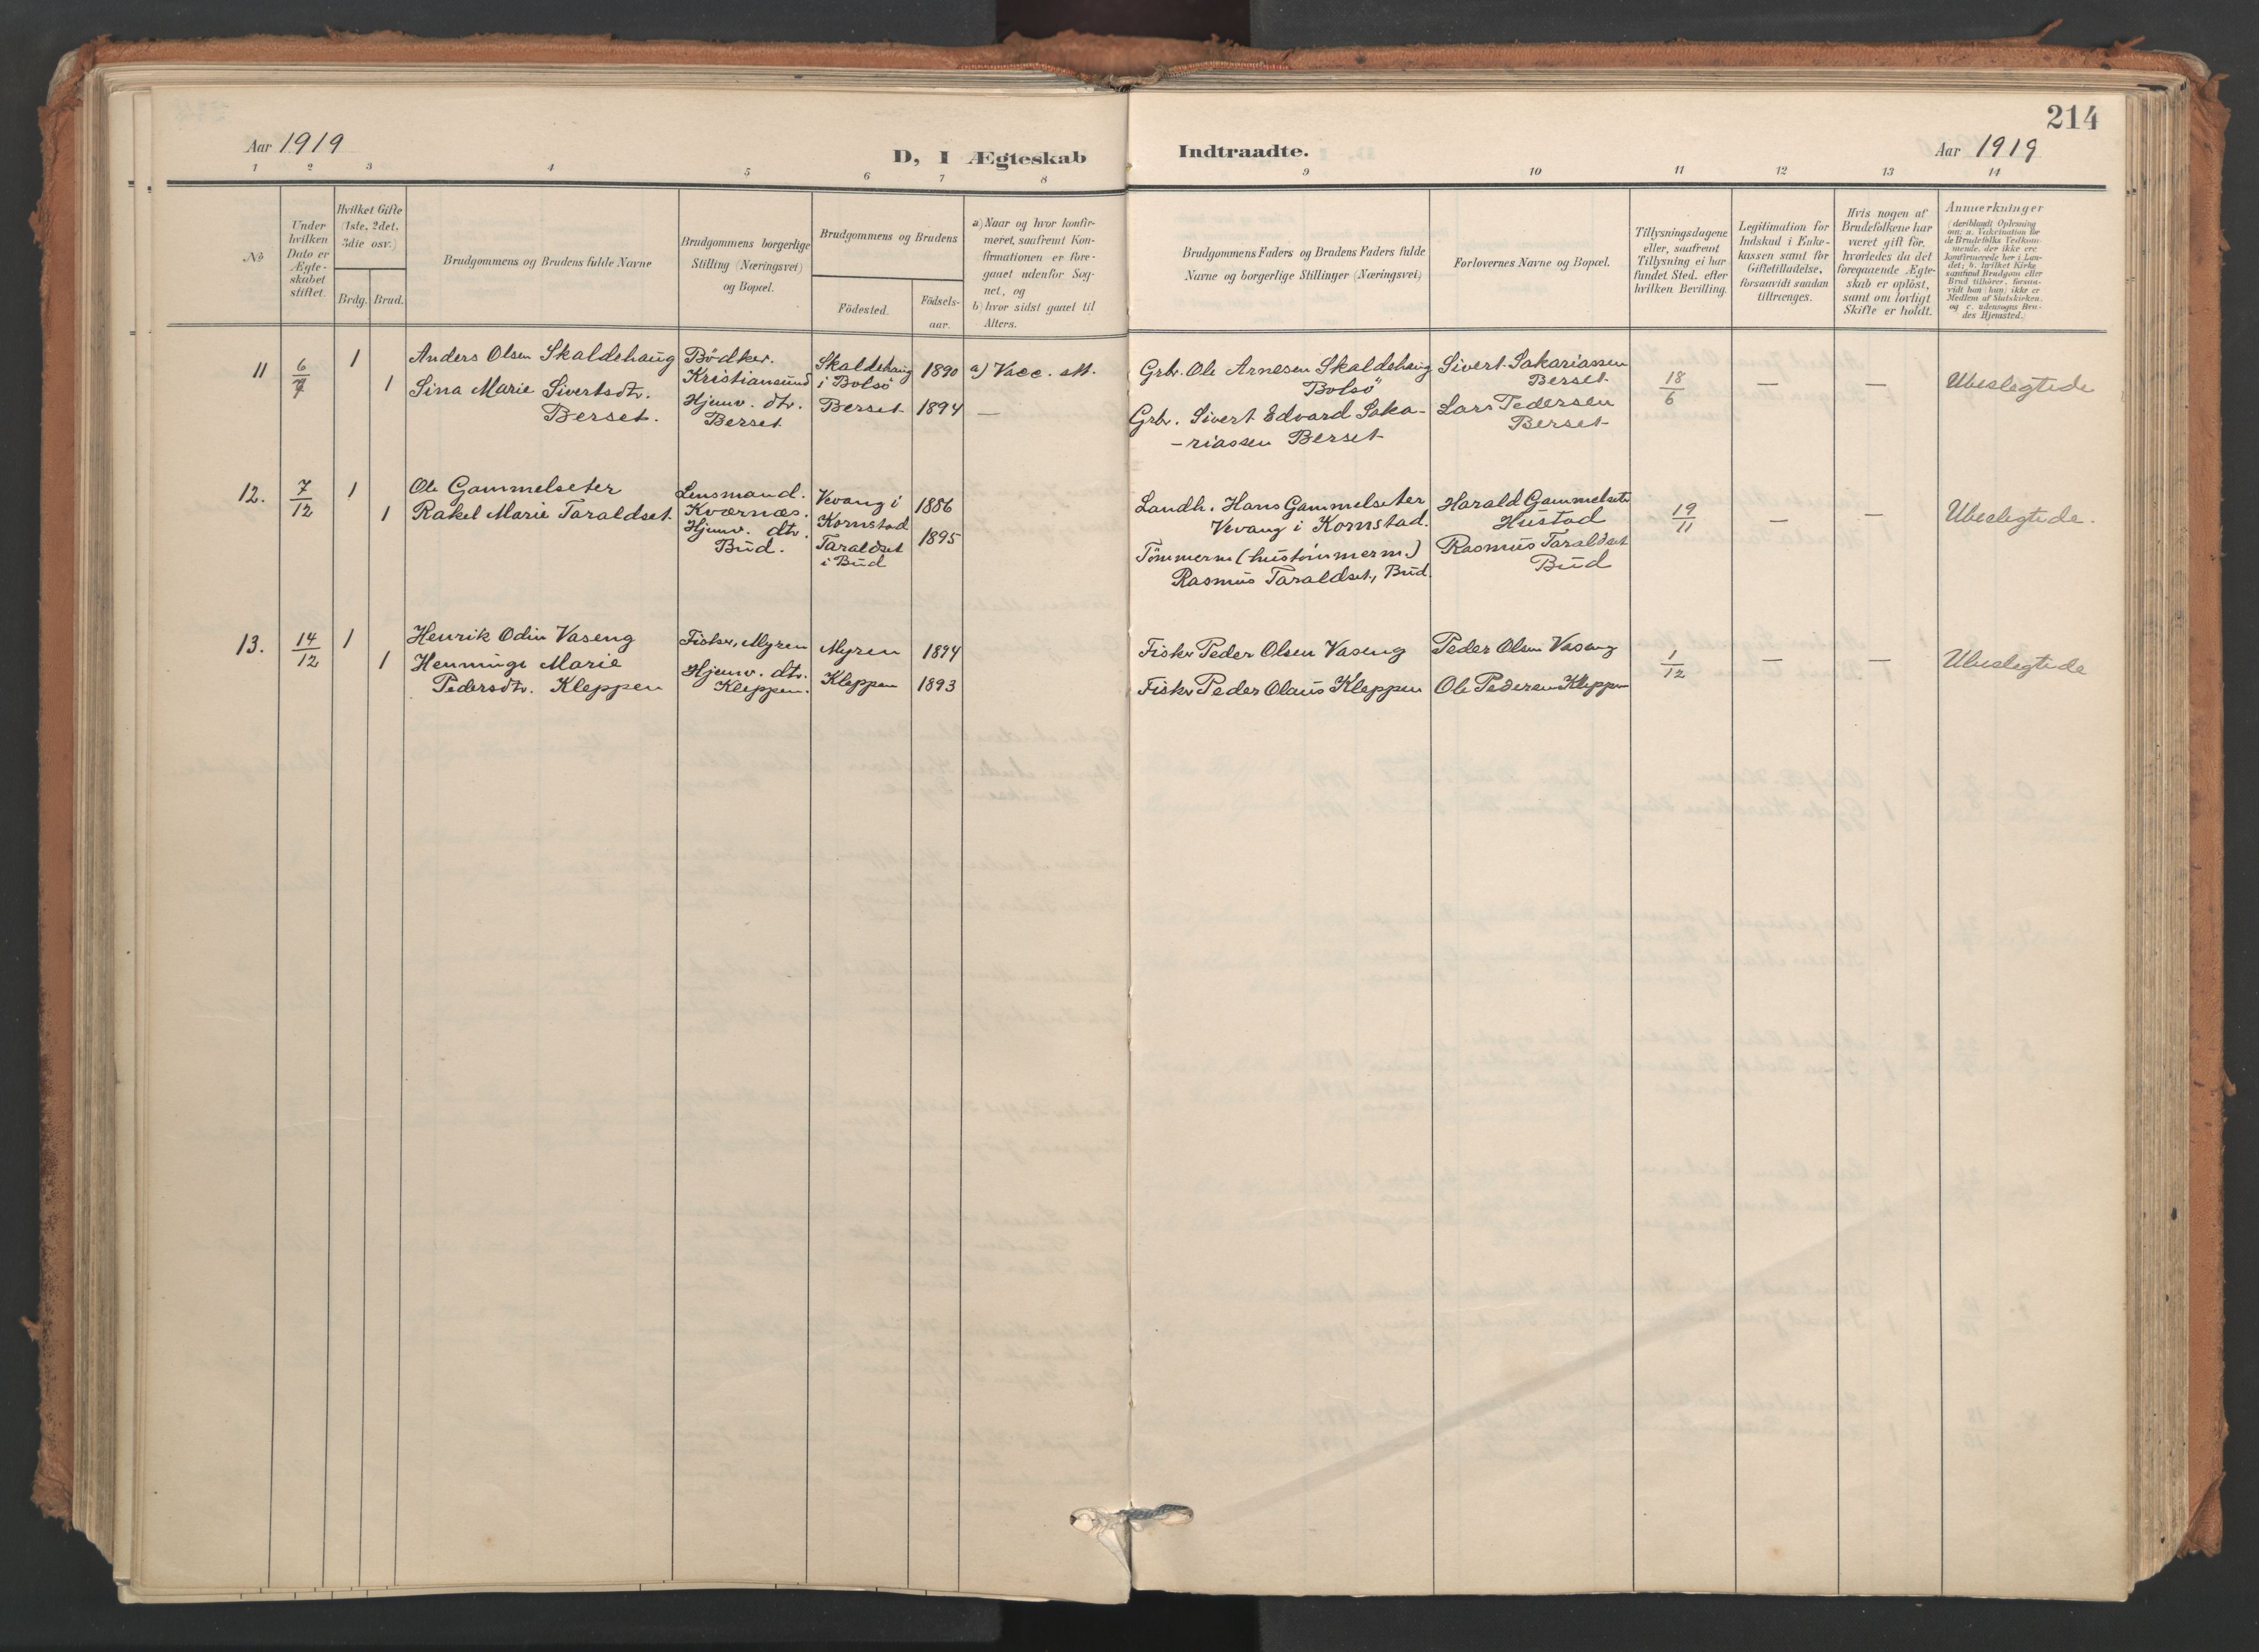 214
Aar 1919
D, I Ægteskab
Indtraadte.
Aar 1919
1 2 3 4 5 6 7 8 9 10 11 12 13 14
№
Under hvilken Dato er Ægteskabet stiftet.
Hvilket Gifte (1ste, 2det, 3die osv.)
Brdg. Brud.
Brudgommens og Brudens fulde Navne
Brudgommens borgerlige Stilling (Næringsvei) og Bopæl.
Brudgommens og Brudens
Födested.
Födsels-aar.
a) Naar og hvor konfir-
meret, saafremt Kon-
firmationen er fore-
gaaet udenfor Sog-
net, og
b) hvor sidst gaaet til
Alters.
Brudgommens Faders og Brudens Faders fulde
Navne og borgerlige Stillinger (Næringsvei)
Forlovernes Navne og Bopæl.
Tillysningsdagene
eller, saafremt
Tillysning ei har
fundet Sted, efter
hvilken Bevilling.
Legitimation for
Indskud i Enke-
kassen samt for
Giftetilladelse,
forsaavidt saadan
tiltrænges.
Hvis nogen af
Brudefolkene har
været gift för,
hvorledes da det
foregaaende Ægte-
skab er oplöst,
samt om lovligt
Skifte er holdt.
Anmærkninger
(deriblandt Oplysning
om: a. Vakcination for
de Brudefolks Vedkom-
mende, der ikke ere
konfirmerede her i Lan-
det; b. hvilket Kirke
samfund Brudgom eller
Brud tilhörer, forsaa-
vidt han (hun) ikke er
Medlem af Statskirken,
og c. udensogns Bru-
des Hjemsted.)
11 6/7 1
Anders Olsen Skaldehaug
Bödker.
Kristiansund
Skaldehaug
i Bolsö
1890
a) Vacc. att.
Grbr. Ole Arnesen Skaldehaug
Bolsö
Sivert Sakariassen
Berset
18/6
—
—
Ubeslegtede
1
Sina Marie Sivertsdtr.
Berset.
Hjemv. dtr.
Berset
Berset
1894
—
Grbr. Sivert Edvard Saka-
-riassen Berset
Lars Pedersen
Berset
12. 7/12 1
Ole Gammelseter
Lensmand.
Kværnæs.
Vevang i
Kornstad
1886
Landh. Hans Gammelseter
Vevang i Kornstad.
Harald Gammelseter
Hustad
19/11
—
—
Ubeslegtede.
1
Rakel Marie Taraldset.
Hjemv. dtr.
Bud.
Taraldset
i Bud
1895
Tömmerm (hustömmerm.)
Rasmus Taraldset, Bud.
Rasmus Taraldset
Bud
13. 14/12 1
Henrik Odin Vaseng
Fisker, Myren
Myren
1894
Fisker Peder Olsen Vaseng
Peder Olsen Vaseng
1/12
—
—
Ubeslegtede
1
Henninge Marie
Pedersdtr. Kleppen
Hjemv. dtr.
Kleppen.
Kleppen
1893
Fisker Peder Olaus Kleppen
Ole Pedersen Kleppen